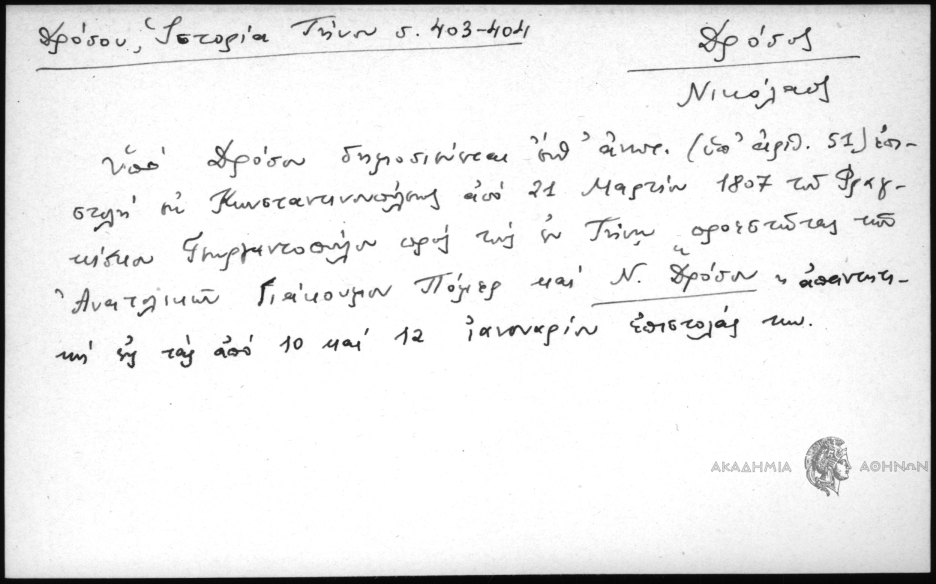 Δρόσου, Ἱστορία Τήνου σ. 403-404
Δρόσος
Νικόλαος
Ὑπὸ Δρόσου δημοσιεύεται (ὑπ' ἀριθ. 51) ἐπι-
στολὴ ἐκ Κωνσταντινουπόλεως ἀπὸ 21 Μαρτίου 1807 τοῦ Φραγ-
κίσκου πρὸς τοὺς ἐν Τήνῳ προεστῶτας τῶν
Ἀνατολικῶν Γιάκουμον καὶ Ν. Δρόσον ἀπαντητι-
κὴ εἰς τὰς ἀπὸ 10 καὶ 12 ἰανουαρίου ἐπιστολάς των.
ΑΚΑΔΗΜΙΑ ΑΘΗΝΩΝ